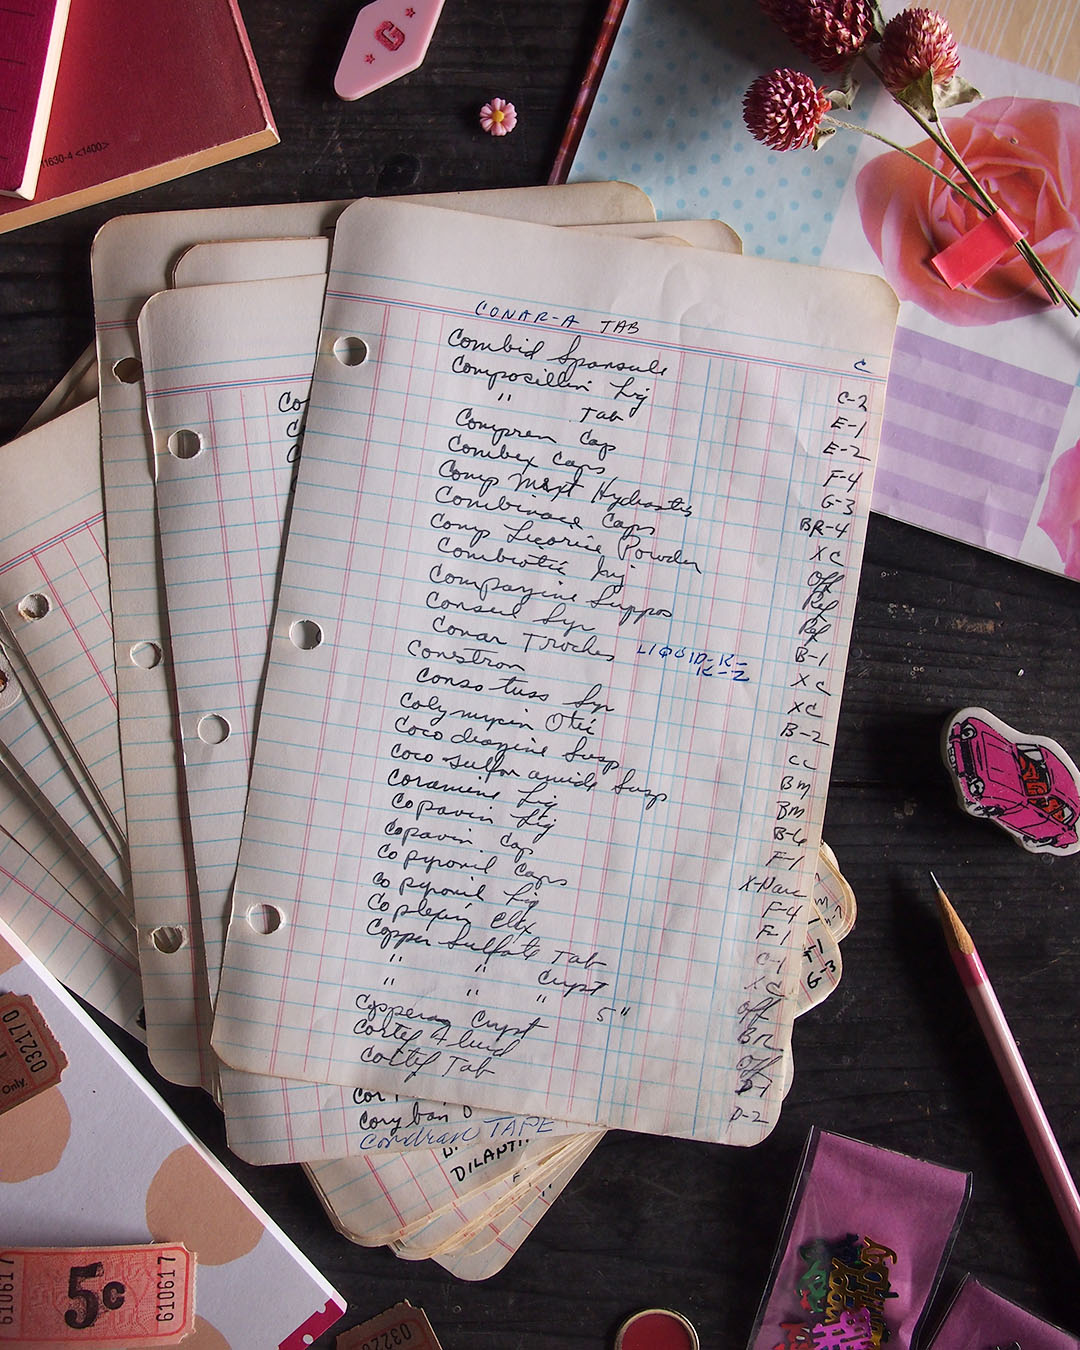 G
11630-4 <1400>
CONAR-A TAB
C
Combid Spansule C-2
Composillin Liq E-1
" Tab E-2
Compren Cap F-4
Combex Caps G-3
Comp Mixt Hydrastis BR-4
Combinace Caps XC
Comp Licorice Powder Off
Combiotic Inj Ref
Compazine Suppos Ref
Consul Syr B-1
Conar Troches LIQUID-K- XC
K-2
Conestron XC
Conso tuss Syr B-2
Coly mycin Otic CC
Coco diazine Susp BM
Coco sulfonamide Susp BM
Coramine Liq B-6
Copavin Liq F-1
Copavin Cap X-Narc
Co pyronil Caps F-4
Co pyronil Liq F-1
Co plexin Elix C-1
Copper Sulfate Tab XC
" " Cryst Off
" " " 5" BR
Copperas Cryst Off
Cortef Fluid D-1
Cortef Tab D-2
Co
C
C
Cor
Cory ban D
Cordran TAPE
DILANTI
F
M-7
-1
G-3
032170
Only.
610617
5¢
610617